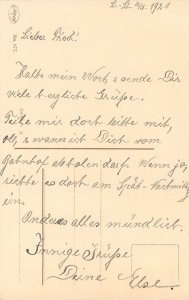 L. 12. 6/5. 1921
Lieber Fred!
Halte mein Wort & sende Dir
viele herzliche Grüsse.
Teile mir dort bitte mit,
ob & wann ich Dich vom
Bahnhof abholen darf. Wenn ja,
richte es doch am Spät-Nachmittag
ein.
Anderes alles mündlich.
Innige Grüsse
Deine Else.